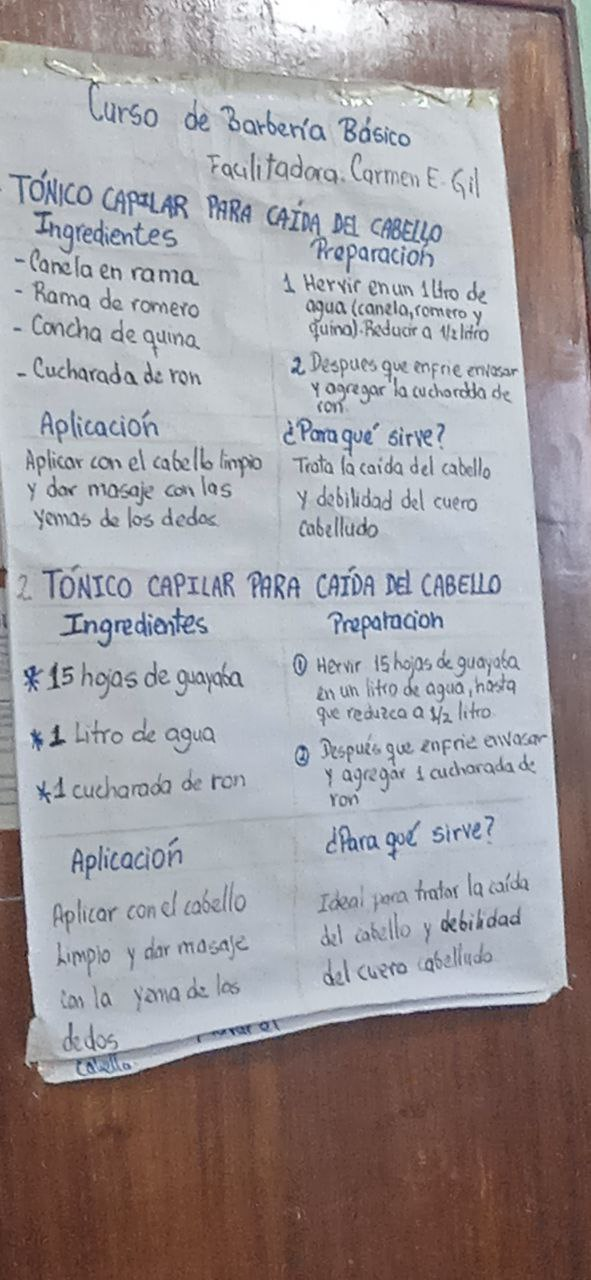 Curso de Barbería Básico
Facilitadora. Carmen E. Gil
TÓNICO CAPILAR PARA CAÍDA DEL CABELLO
Ingredientes
- Canela en rama
- Rama de romero
- Concha de quina
- Cucharada de ron
Preparación
1 Hervir en un 1 litro de
agua (canela, romero y
quina). Reducir a 1/2 litro
2 Despues que enfrie envasar
y agregar la cucharada de
ron.
Aplicación
Aplicar con el cabello limpio
y dar masaje con las
yemas de los dedos
¿Para qué sirve?
Trata la caida del cabello
y debilidad del cuero
cabelludo
2 TÓNICO CAPILAR PARA CAÍDA DEL CABELLO
Ingredientes
* 15 hojas de guayaba
* 1 Litro de agua
* 1 cucharada de ron
Preparacion
① Hervir 15 hojas de guayaba
en un litro de agua, hasta
que reduzca a 1/2 litro
② Después que enfrie envasar
y agregar 1 cucharada de
ron
Aplicación
Aplicar con el cabello
Limpio y dar masaje
con la yema de los
dedos
¿Para qué sirve?
Ideal para tratar la caída
del cabello y debilidad
del cuero cabelludo
cabello.